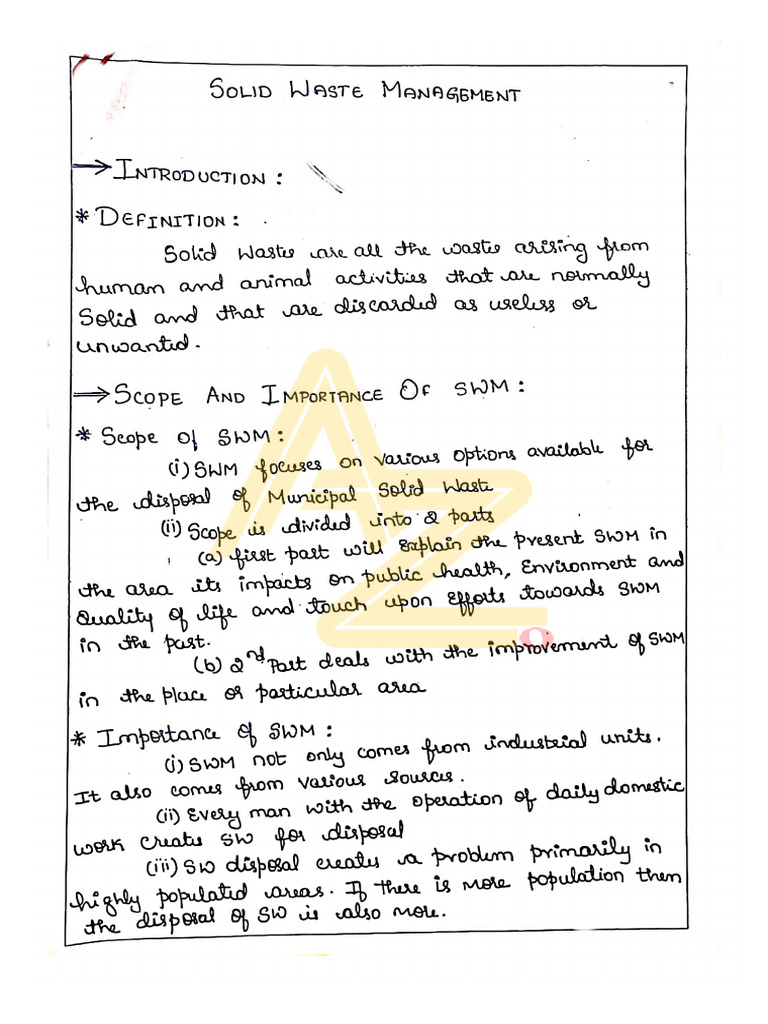 SOLID WASTE MANAGEMENT
→ INTRODUCTION :
* DEFINITION :
Solid Wastes are all the wastes arising from
human and animal activities that are normally
Solid and that are discarded as useless or
unwanted.
→ SCOPE AND IMPORTANCE OF SWM :
* Scope of SWM :
(i) SWM focuses on various options available for
the disposal of Municipal Solid Waste
(ii) Scope is divided into 2 parts
(a) first part will explain the present SWM in
the area its impacts on public health, Environment and
Quality of life and touch upon Efforts towards SWM
in the past.
(b) 2nd Part deals with the improvement of SWM
in the place or particular area
* Importance of SWM :
(i) SWM not only comes from industrial units.
It also comes from various sources.
(ii) Every man with the operation of daily domestic
work creates SW for disposal
(iii) SW disposal creates a problem primarily in
highly populated areas. If there is more population them
the disposal of SW is also more.
AZ